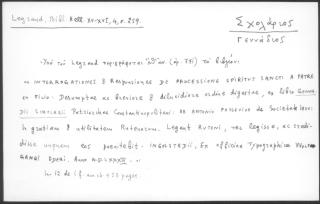 Legrand, Bibl. Hell. XV-XVI, 4, σ. 259.
Σχολάριος
Γεννάδιος
Υπό του Legrand περιγράφεται το βιβλίον:
« INTERROGATIONES & RESPONSIONES DE PROCESSIONE SPIRITUS SANCTI A PATRE
et Filio. Desumptae ac breviore & dilucidiore ordine digestae, ex libro GENNA-
DII SCHOLARII Patriarchae Constantinopolitani. AB ANTONIO POSSEVINO de Societate Iesu:
In gratiam & utilitatem Rutenorum. Legant RUTENI, nec legisse, ac credi-
disse unquam eos poenitebit. INGOLSTADII, Ex officina Typographica WOLF-
GANGI EDERI. Anno M.D.LXXXII. »
In 12